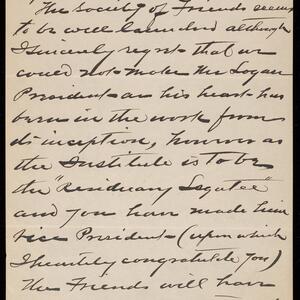 The Society of Friends seems
to be well launched although
I sincerely regret that we
could not make Mr Logan
President as his heart has
been in the work from
its inception, however as
the Institute is to be
the "Residuary Legatee"
and you have made him
vice President (upon which
I heartily congratulate you)
the Friends will have